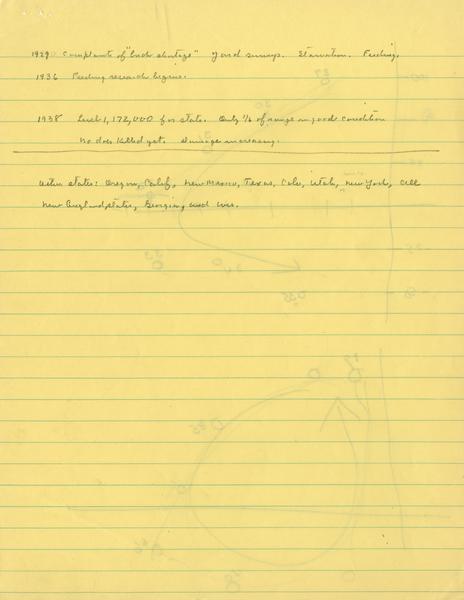 1929 Complaints of "buck shortage" Yard surveys. Starvation. Feeding.
1936 Feeding research begins.
1938 Level 1,172,000 for state. Only 1/6 of range in good condition
No does killed yet. Damage increasing.
Other states: Oregon, Calif, New Mexico, Texas, Colo, Utah, New York, all
New England states, Georgia, and Wis.